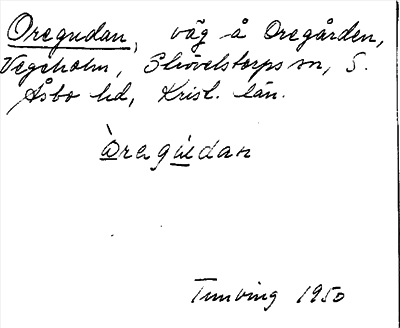 Oregudan, väg å Oregården,
Vegeholm, Strövelstorps sn, S.
Åsbo hd, Krist. län.
Òregùdan
Tunving 1950